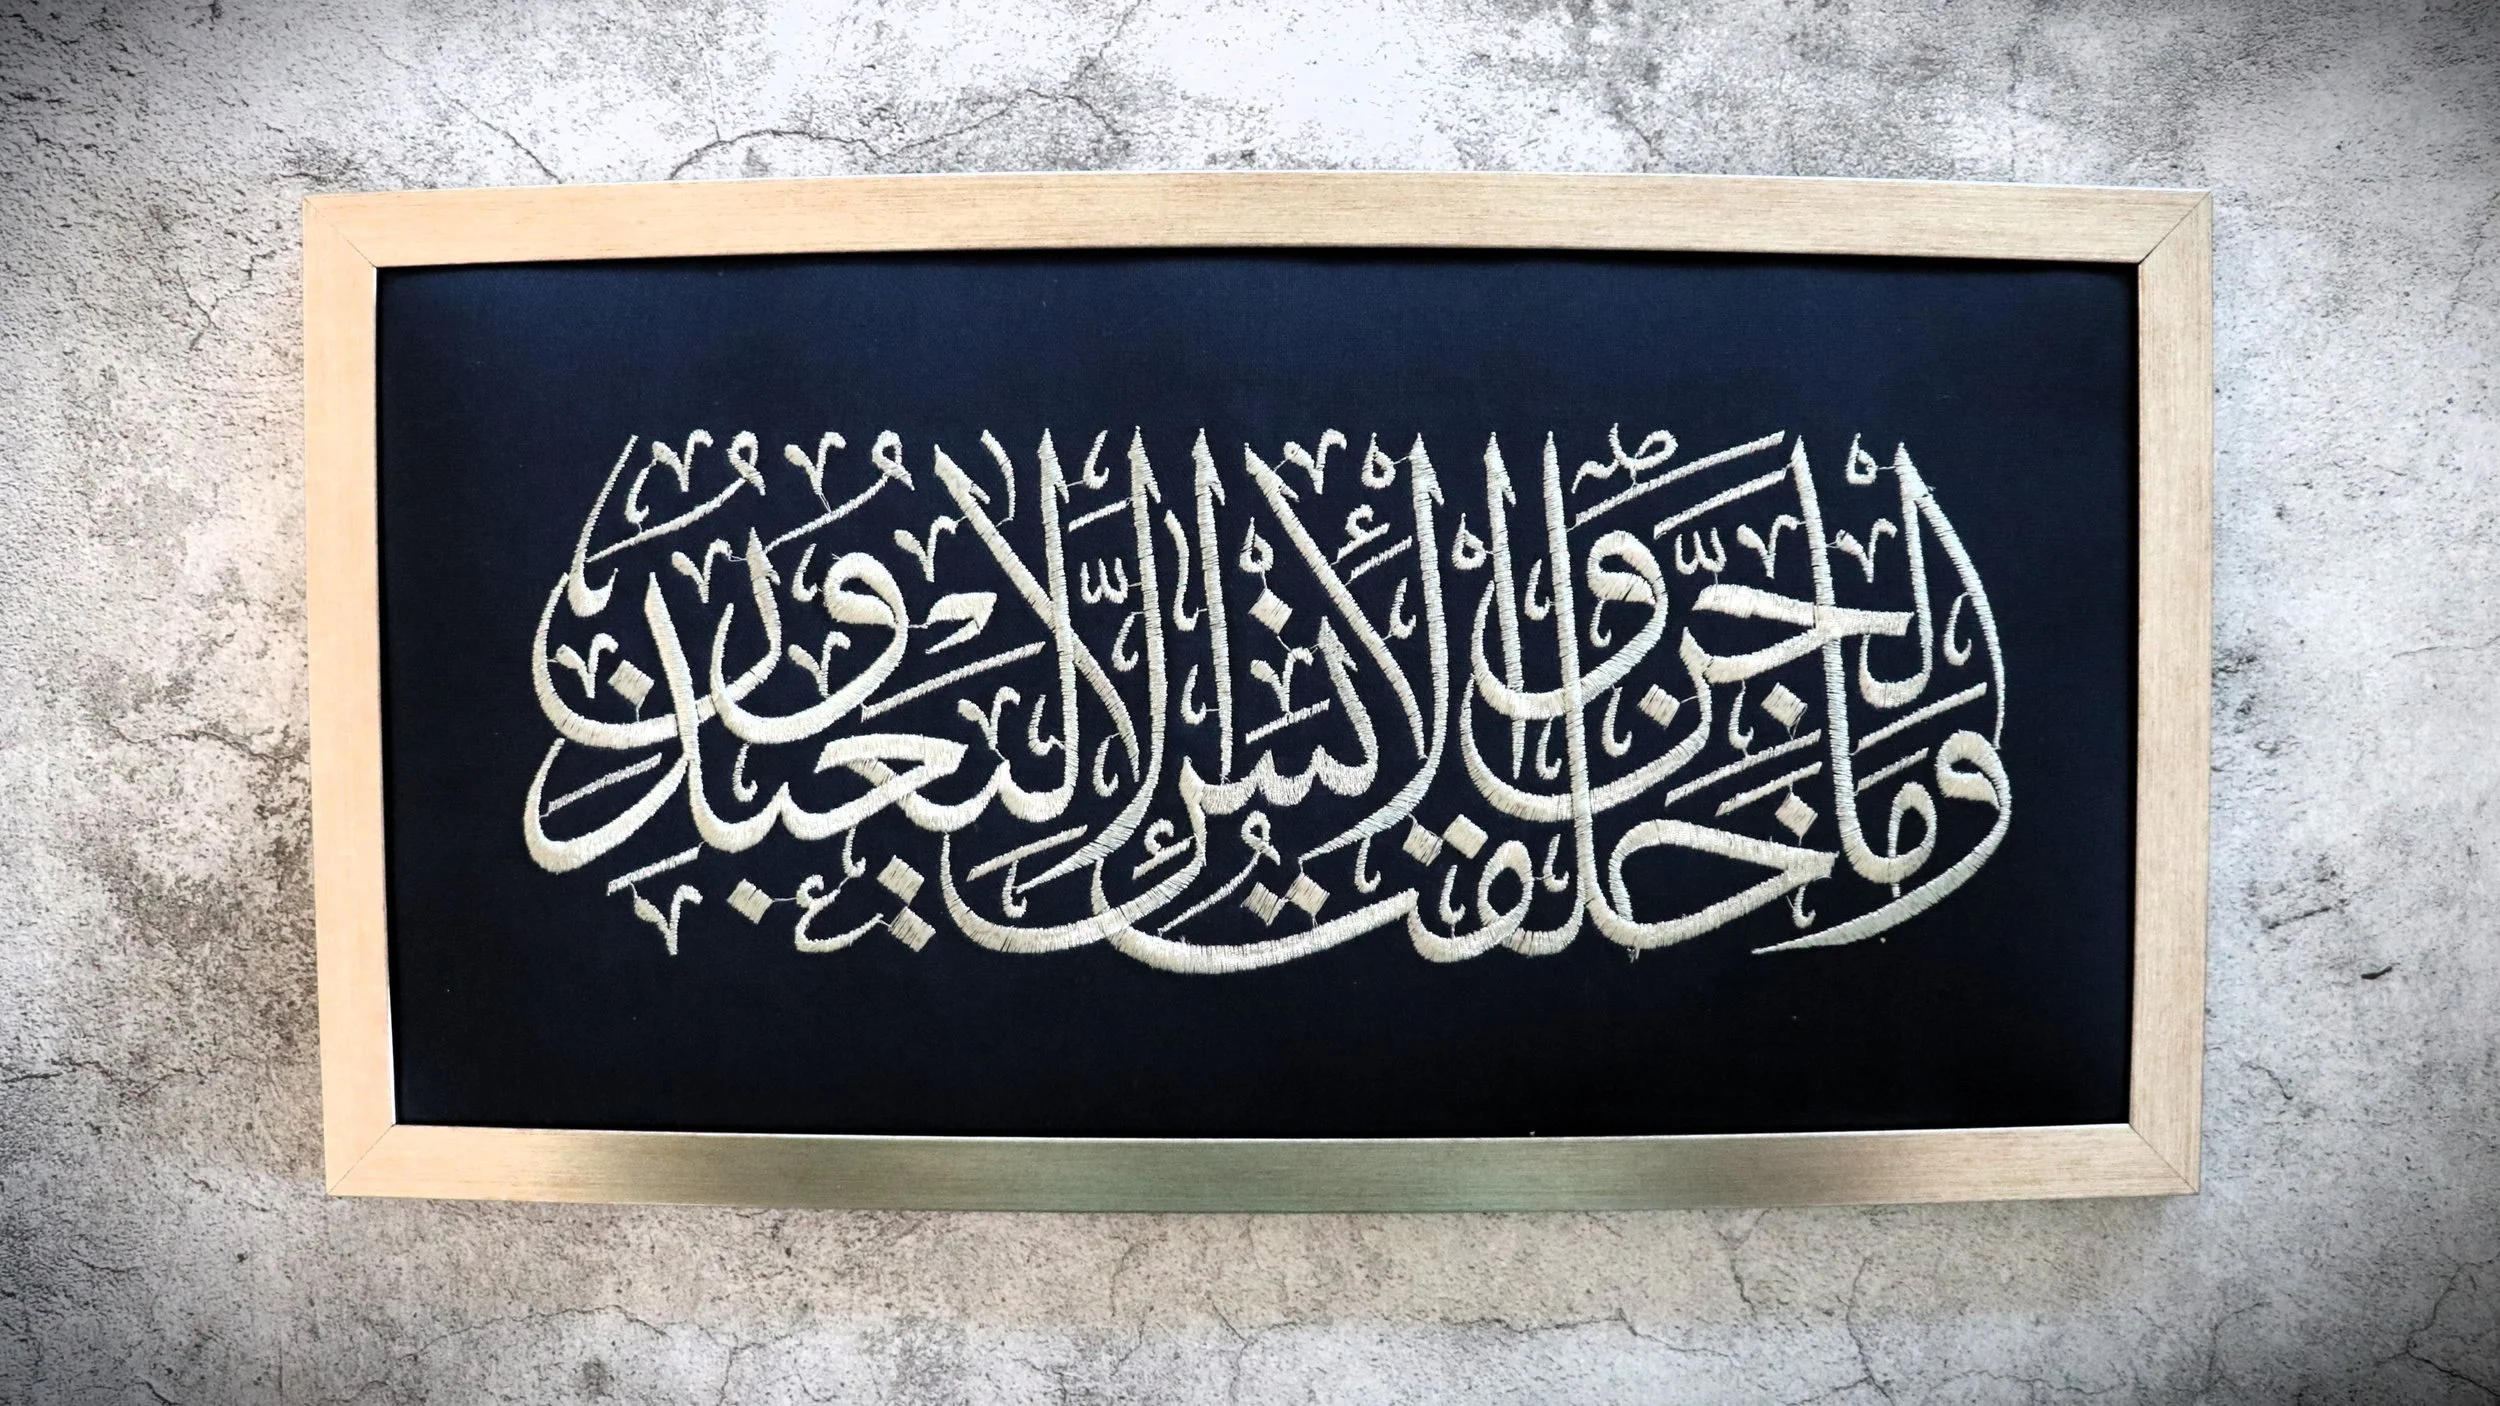 وَمَا خَلَقْتُ الْجِنَّ وَالْإِنْسَ إِلَّا لِيَعْبُدُونِ